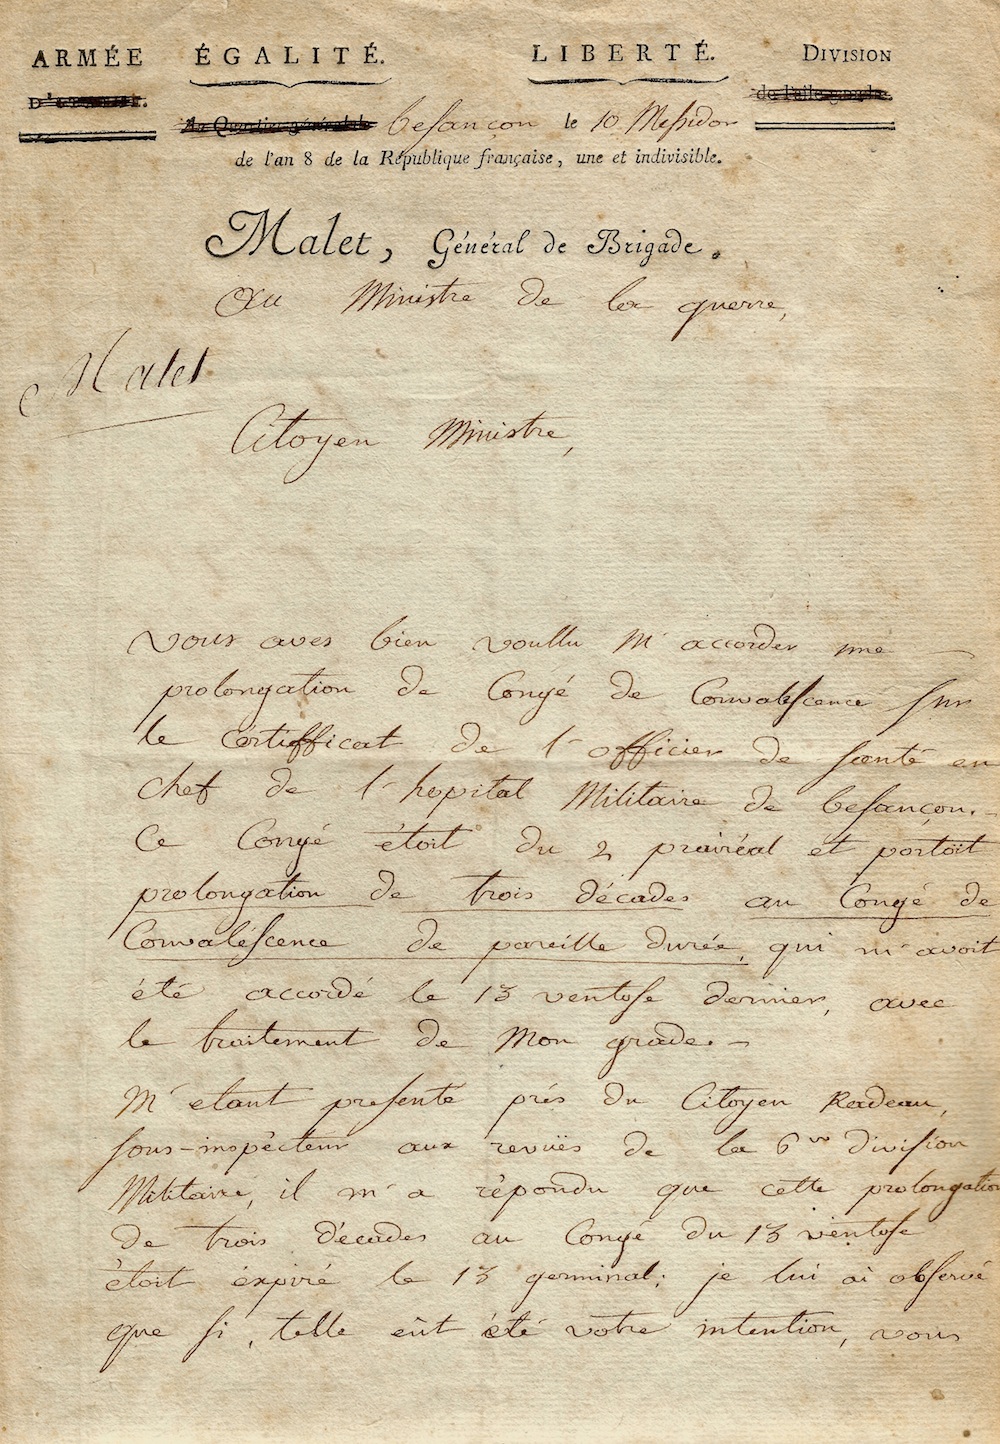 ARMÉE ÉGALITÉ. LIBERTÉ. DIVISION
besançon le 10 Messidor
de l'an 8 de la République française, une et indivisible.
Malet, Général de Brigade.
Au Ministre de la guerre,
Malet
Citoyen Ministre,
vous aves bien voullu m'accorder une
prolongation de Congé de Convalescence sur
le certifficat de l'officier de santé en
chef de l'hopital Militaire de besançon.
Ce Congé étoit du 2 prairéal et portoit
prolongation de trois décades au Congé de
Convaléscence de pareille durée, qui m'avoit
été accordé le 13 ventose dernier, avec
le traitement de Mon grade.
M'etant presenté prés du Citoyen Radeau,
sous-inspécteur aux revuës de la 6e division
Militaire, il m'a répondu que cette prolongation
de trois décades au Congé du 13 ventose
étoit éxpiré le 13 germinal; je lui ai observé
que si, telle eût été votre intention, vous